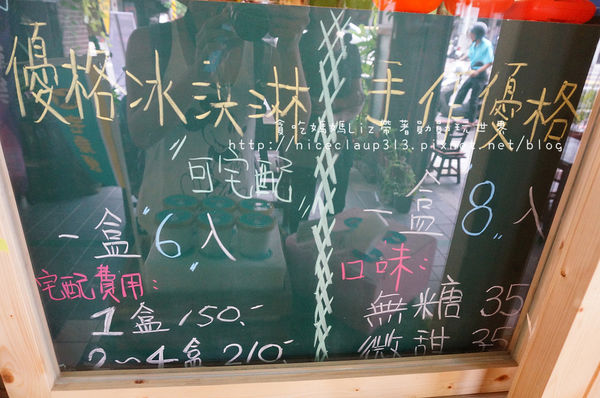 優格冰淇淋
"可宅配"
一盒"6"入
宅配費用:
1盒150.-
2~4盒210.-
手作優格
一盒"8"入
口味:
無糖35
微甜35
貪吃媽媽Liz帶著勛勛玩世界
http://niceclaup313.pixnet.net/blog